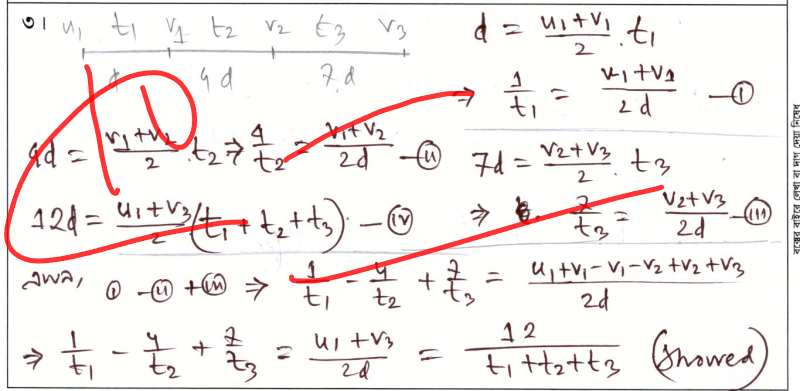 ৩। u₁ t₁ v₁ t₂ v₂ t₃ v₃
d 4d 7d
d = (u₁+v₁)/2 · t₁
⇒ 1/t₁ = (u₁+v₁)/2d —(i)
4d = (v₁+v₂)/2 · t₂ ⇒ 4/t₂ = (v₁+v₂)/2d —(ii)
7d = (v₂+v₃)/2 · t₃
⇒ 7/t₃ = (v₂+v₃)/2d —(iii)
12d = (u₁+v₃)/2 (t₁+t₂+t₃) —(iv)
এখন, (i) - (ii) + (iii) ⇒ 1/t₁ - 4/t₂ + 7/t₃ = (u₁+v₁-v₁-v₂+v₂+v₃)/2d
⇒ 1/t₁ - 4/t₂ + 7/t₃ = (u₁+v₃)/2d = 12/(t₁+t₂+t₃) (showed)
বক্সের বাইরে লেখা বা দাগ দেয়া নিষেধ